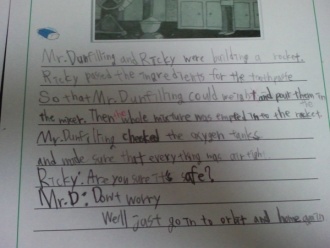 Mr. Dunfilling and Ricky were building a rocket.
Ricky passed the ingredients for the toothpaste
So that Mr. Dunfilling could weight and pour them in
the mixer. Then the whole mixture was emptied into the rocket.
My. Dunfilling checked the oxygen tanks
and made sure that everything was air right
Ricky: Are you sure it's safe?
Mr. D: Don't worry
Well just go in to orbit and home again